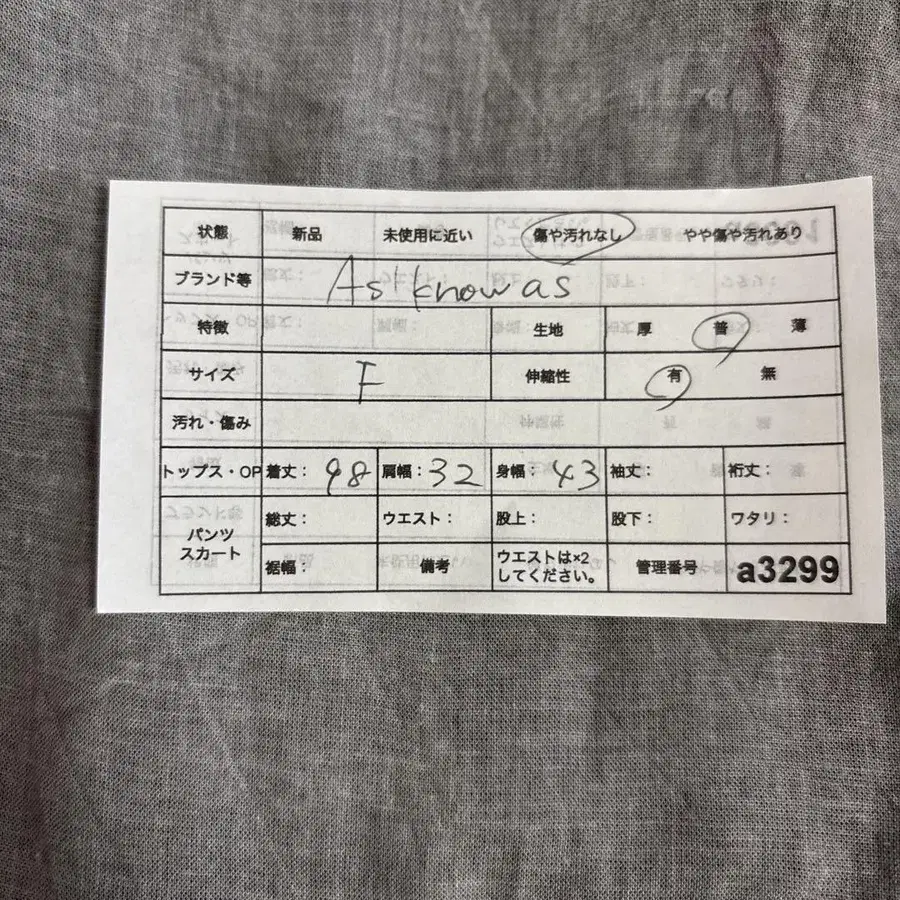 状態 新品 未使用に近い 傷や汚れなし やや傷や汚れあり
ブランド等 As'know as
特徴 生地 厚 普 薄
サイズ F 伸縮性 有 無
汚れ・傷み
トップス・OP 着丈： 98 肩幅： 32 身幅： 43 袖丈： 裄丈：
パンツ スカート 総丈： ウエスト： 股上： 股下： ワタリ：
裾幅： 備考 ウエストは×2 してください。 管理番号 a3299